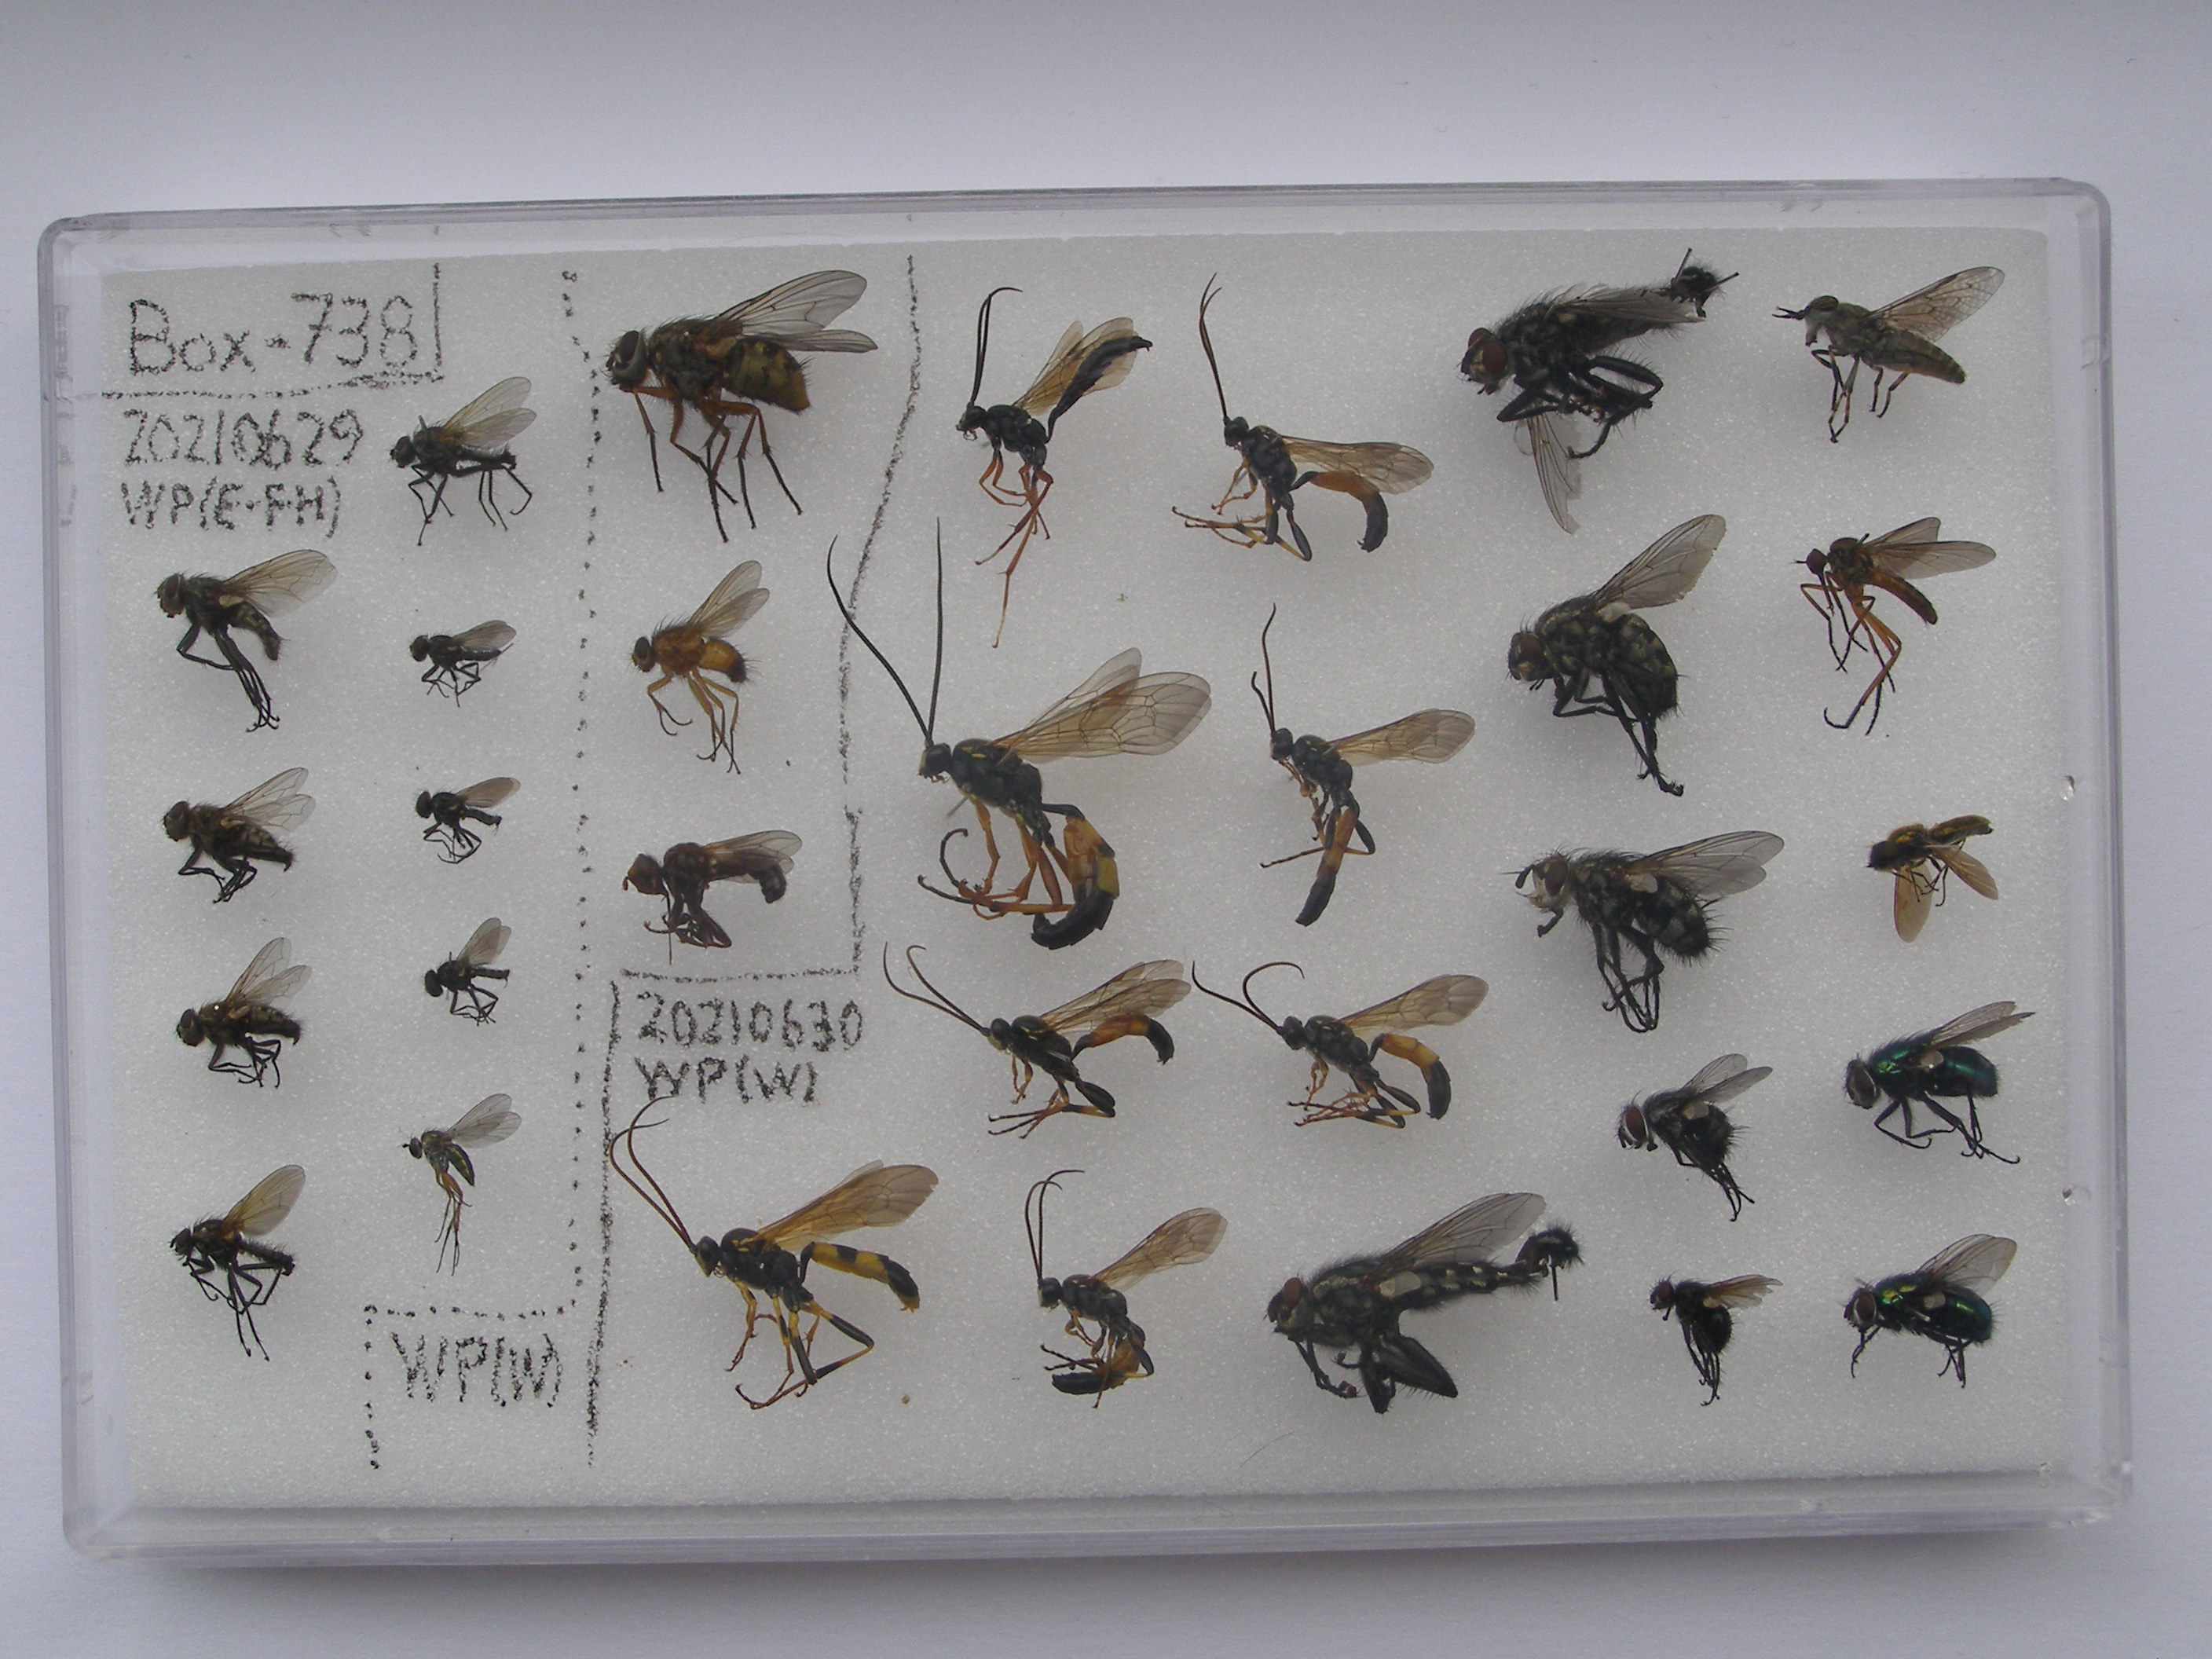 Box-738
20210629
WP(E-FH)
WP(W)
20210630
WP(W)